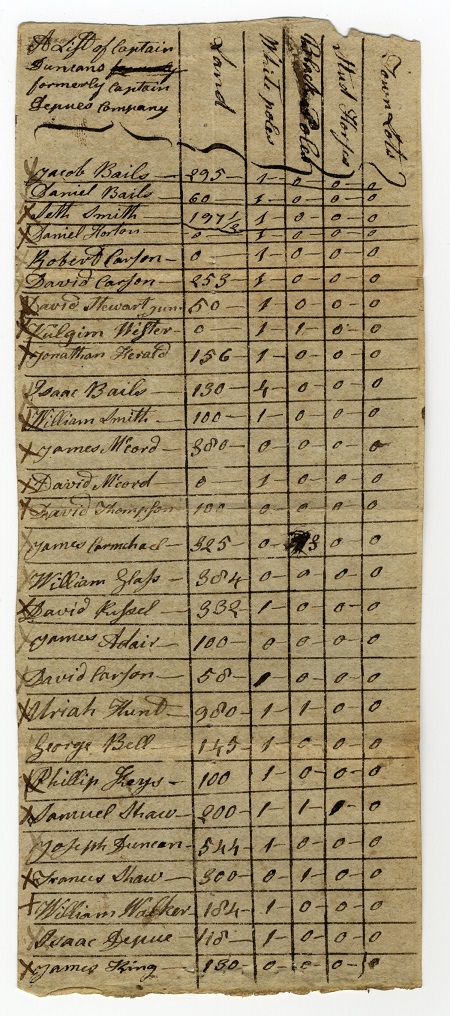 A List of Captain
Duncans formerly
formerly Captain
Depues Company
Land
White poles
Black Poles
Stud Horses
Town Lots
Jacob Bails 295 1 0 0 0
Daniel Bails 60 1 0 0 0
X Seth Smith 197 1/2 1 0 0 0
X Daniel Horton 0 1 0 0 0
Robert Carson 0 1 0 0 0
David Carson 253 1 0 0 0
X David Stewart Jun 50 1 0 0 0
X Fulgim 0 1 1 0 0
X Jonathan Herald 156 1 0 0 0
Isaac Bails 130 4 0 0 0
William Smith 100 1 0 0 0
X James Mcord 380 0 0 0 0
X David Mcord 0 1 0 0 0
X David Thompson 100 0 0 0 0
James Carmichael 325 0 3 0 0
William Glass 384 0 0 0 0
X David Russel 332 1 0 0 0
James Adair 100 0 0 0 0
David Carson 58 1 0 0 0
X Uriah Hunt 980 1 1 0 0
George Bell 145 1 0 0 0
X Phillip Hays 100 1 0 0 0
X Samuel Shaw 200 1 1 1 0
Joseph Duncan 544 1 0 0 0
X Francis Shaw 300 0 1 0 0
X William Walker 184 1 0 0 0
Isaac Depue 118 1 0 0 0
X James King 130 0 0 0 0